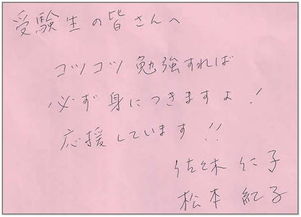 受験生の皆さんへ
コツコツ勉強すれば
必ず身につきますよ!
応援しています!!
佐々木仁子
松本紀子